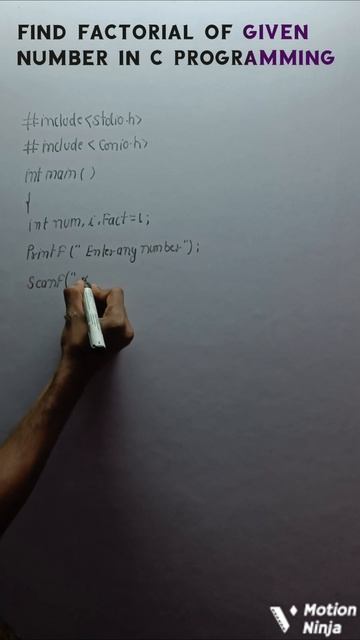 FIND FACTORIAL OF GIVEN
NUMBER IN C PROGRAMMING
#include<stdio.h>
#include <conio.h>
int main()
{
int num, i, Fact=1;
PrintF(" Enter any number");
ScanF("
Motion
Ninja